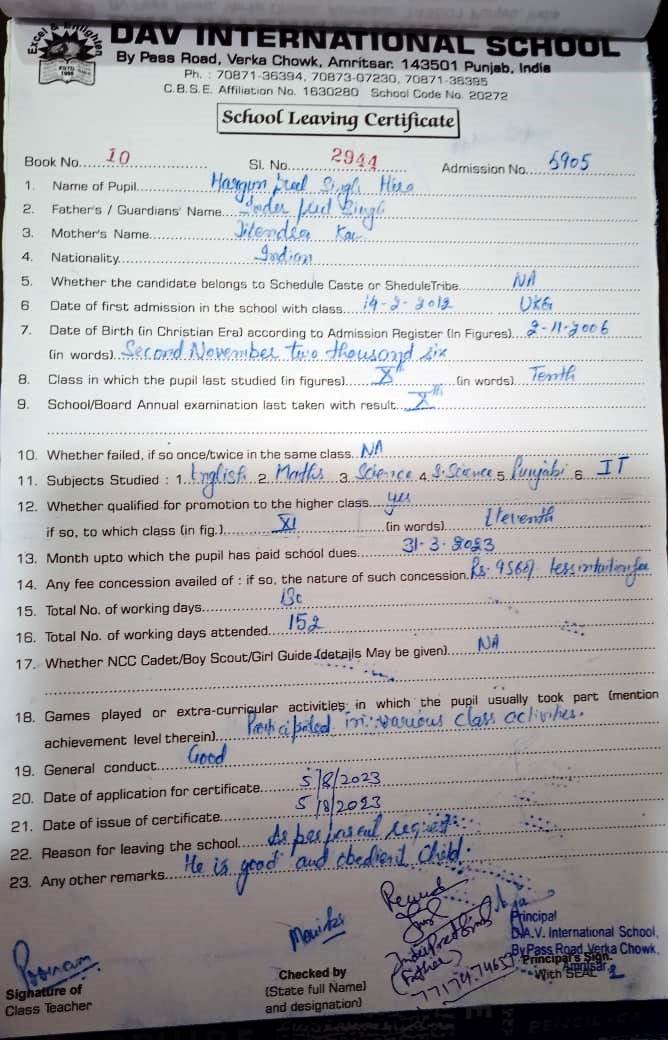 Excel & Enlighten
ESTD
1999
DAV INTERNATIONAL SCHOOL
By Pass Road, Verka Chowk, Amritsar. 143501 Punjab, India
Ph. : 70871-36394, 70873-07230, 70871-36395
C.B.S.E. Affiliation No. 1630280 School Code No. 20272
School Leaving Certificate
Book No. 10 Sl. No. 2944 Admission No. 5905
1. Name of Pupil Singh
2. Father's / Guardians' Name Inder preet Singh
3. Mother's Name Kau
4. Nationality Indian
5. Whether the candidate belongs to Schedule Caste or SheduleTribe. NA
6 Date of first admission in the school with class 14-2-2012 UKG
7. Date of Birth (in Christian Era) according to Admission Register (In Figures) 2-11-2006
(in words) Second November two thousand six
8. Class in which the pupil last studied (in figures) Xth (in words) Tenth
9. School/Board Annual examination last taken with result Xth
10. Whether failed, if so once/twice in the same class NA
11. Subjects Studied : 1. English 2. Maths 3. Science 4. S.Science 5. Punjabi 6. IT
12. Whether qualified for promotion to the higher class yes
if so, to which class (in fig.) XI (in words) Eleventh
13. Month upto which the pupil has paid school dues 31-3-2023
14. Any fee concession availed of : if so, the nature of such concession. Rs. less in tuition fee
15. Total No. of working days
16. Total No. of working days attended 152
17. Whether NCC Cadet/Boy Scout/Girl Guide (details May be given) NA
18. Games played or extra-curricular activities in which the pupil usually took part (mention
achievement level therein) Participated in various class activities.
19. General conduct Good
20. Date of application for certificate 5/8/2023
21. Date of issue of certificate 5/8/2023
22. Reason for leaving the school As per parent request.
23. Any other remarks He is good and obedient child.
Poonam
Signature of
Class Teacher
Checked by
(State full Name)
and designation)
(Father)
Principal
D.A.V. International School,
By Pass Road, Verka Chowk,
Amritsar
Principal's Sign.
With SEAL